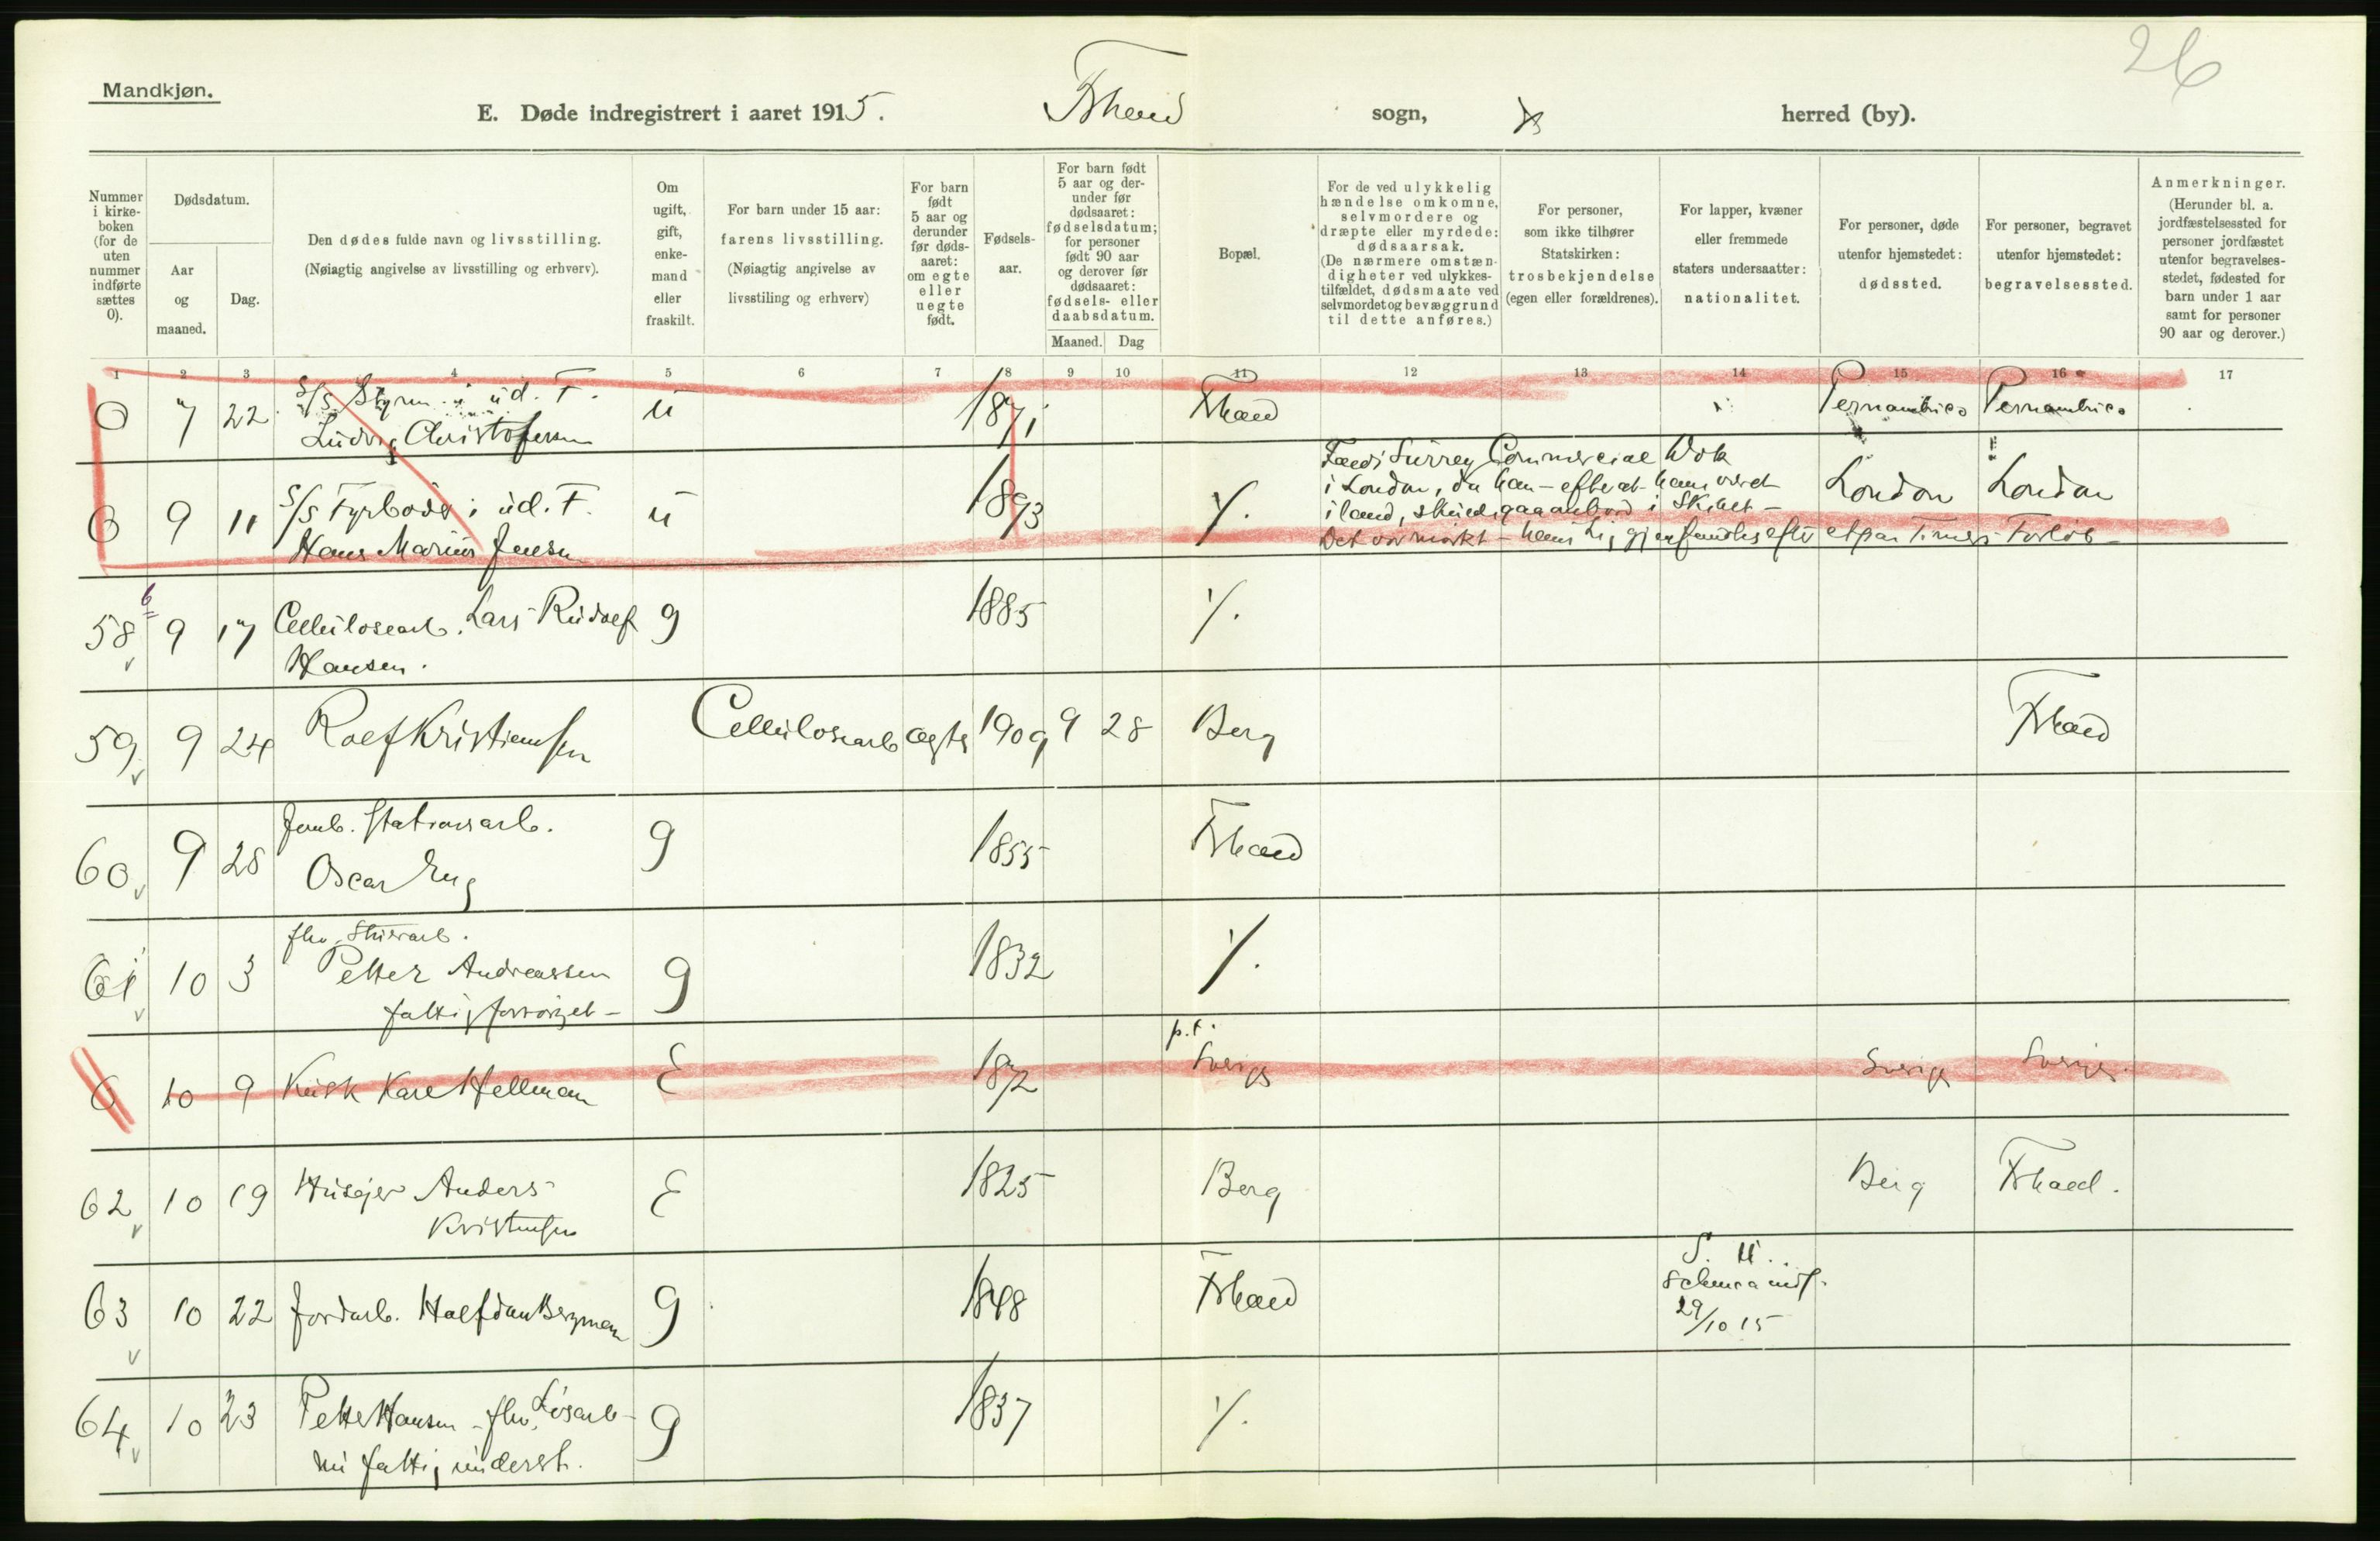 26
Mandkjøn.
E. Døde indregistrert i aaret 1915. Frhald sogn, herred (by).
Nummer i kirke- boken (for de uten nummer indførte sættes 0).
Dødsdatum.
Aar og maaned.
Dag.
Den dødes fulde navn og livsstilling.
(Nøiagtig angivelse av livsstilling og erhverv).
Om ugift, gift, enke- mand eller fraskilt.
For barn under 15 aar: farens livsstilling.
(Nøiagtig angivelse av livsstiling og erhverv)
For barn født 5 aar og derunder før døds- aaret: om egte eller uegte født.
Fødsels- aar.
For barn født 5 aar og der- under før dødsaaret: fødselsdatum; for personer født 90 aar og derover før dødsaaret: fødsels- eller daabsdatum.
Maaned. Dag
Bopæl.
For de ved ulykkelig hændelse omkomne, selvmordere og dræpte eller myrdede: dødsaarsak.
(De nærmere omstæn- digheter ved ulykkes- tilfældet, dødsmaate ved selvmordet og bevæggrund til dette anføres.)
For personer, som ikke tilhører Statskirken: trosbekjendelse (egen eller forældrenes).
For lapper, kvæner eller fremmede staters undersaatter: nationalitet.
For personer, døde utenfor hjemstedet: dødssted.
For personer, begravet utenfor hjemstedet: begravelsessted.
Anmerkninger.
(Herunder bl. a. jordfæstelsessted for personer jordfæstet utenfor begravelses- stedet, fødested for barn under 1 aar samt for personer 90 aar og derover.)
1 2 3 4 5 6 7 8 9 10 11 12 13 14 15 16 17
S/S Styrm. i ud. F.
0 7 22 Ludvig Christofersen u 1871 Frhald Pernambuco Pernambuco
Faldt i Surrey Commercial Dok
i London, da han – efter at ham været
0 9 11 S/S Fyrbøder i ud. F. u 1893 ./. London London
i land, skulde gaa anbord i Skibet –
Hans Marius Jensen Det var mørkt – hans Lig gjenfandtes efter et par Timers Forløb –
58 9 17 Cellulosearb. Lars Rudolf g 1885 ./.
Hansen.
59 9 24 Rolf Kristiansen Cellulosearb ægte 1909 9 28 Berg Frhald
Jernb. Stationsarb.
60 9 28 Oscar g 1855 Frhald
fhv.
61 10 3 Petter Andreassen g 1832 ./.
fattigforsørget –
p.t.
0 10 9 Kusk Karl Hellman E 1872 Sverige Sverige Sverige
62 10 19 Huseier Anders E 1825 Berg Berg Frhald.
Kristensen
63 10 22 Jordarb. Halfdan Bergman g 1848 Frhald
29/10 15
64 10 23 Petter Hansen – fhv. Løsarb – g 1837 ./.
nu fattig underst.